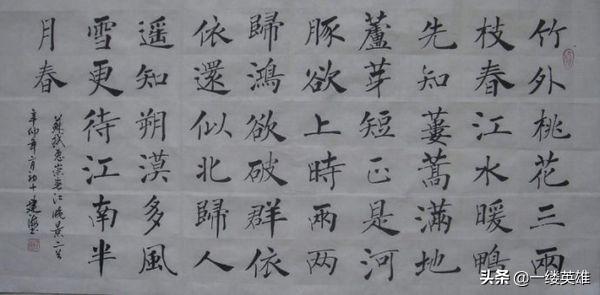 竹外桃花三兩
枝春江水暖鴨
先知蔞蒿滿地
蘆芽短正是河
豚欲上時兩两
歸鴻欲破群依
依還似北歸人
遥知朔漠多風
雪更待江南半
月春
蘇軾惠崇春江晚景二首
辛卯年月初十
头条 @一缕英雄